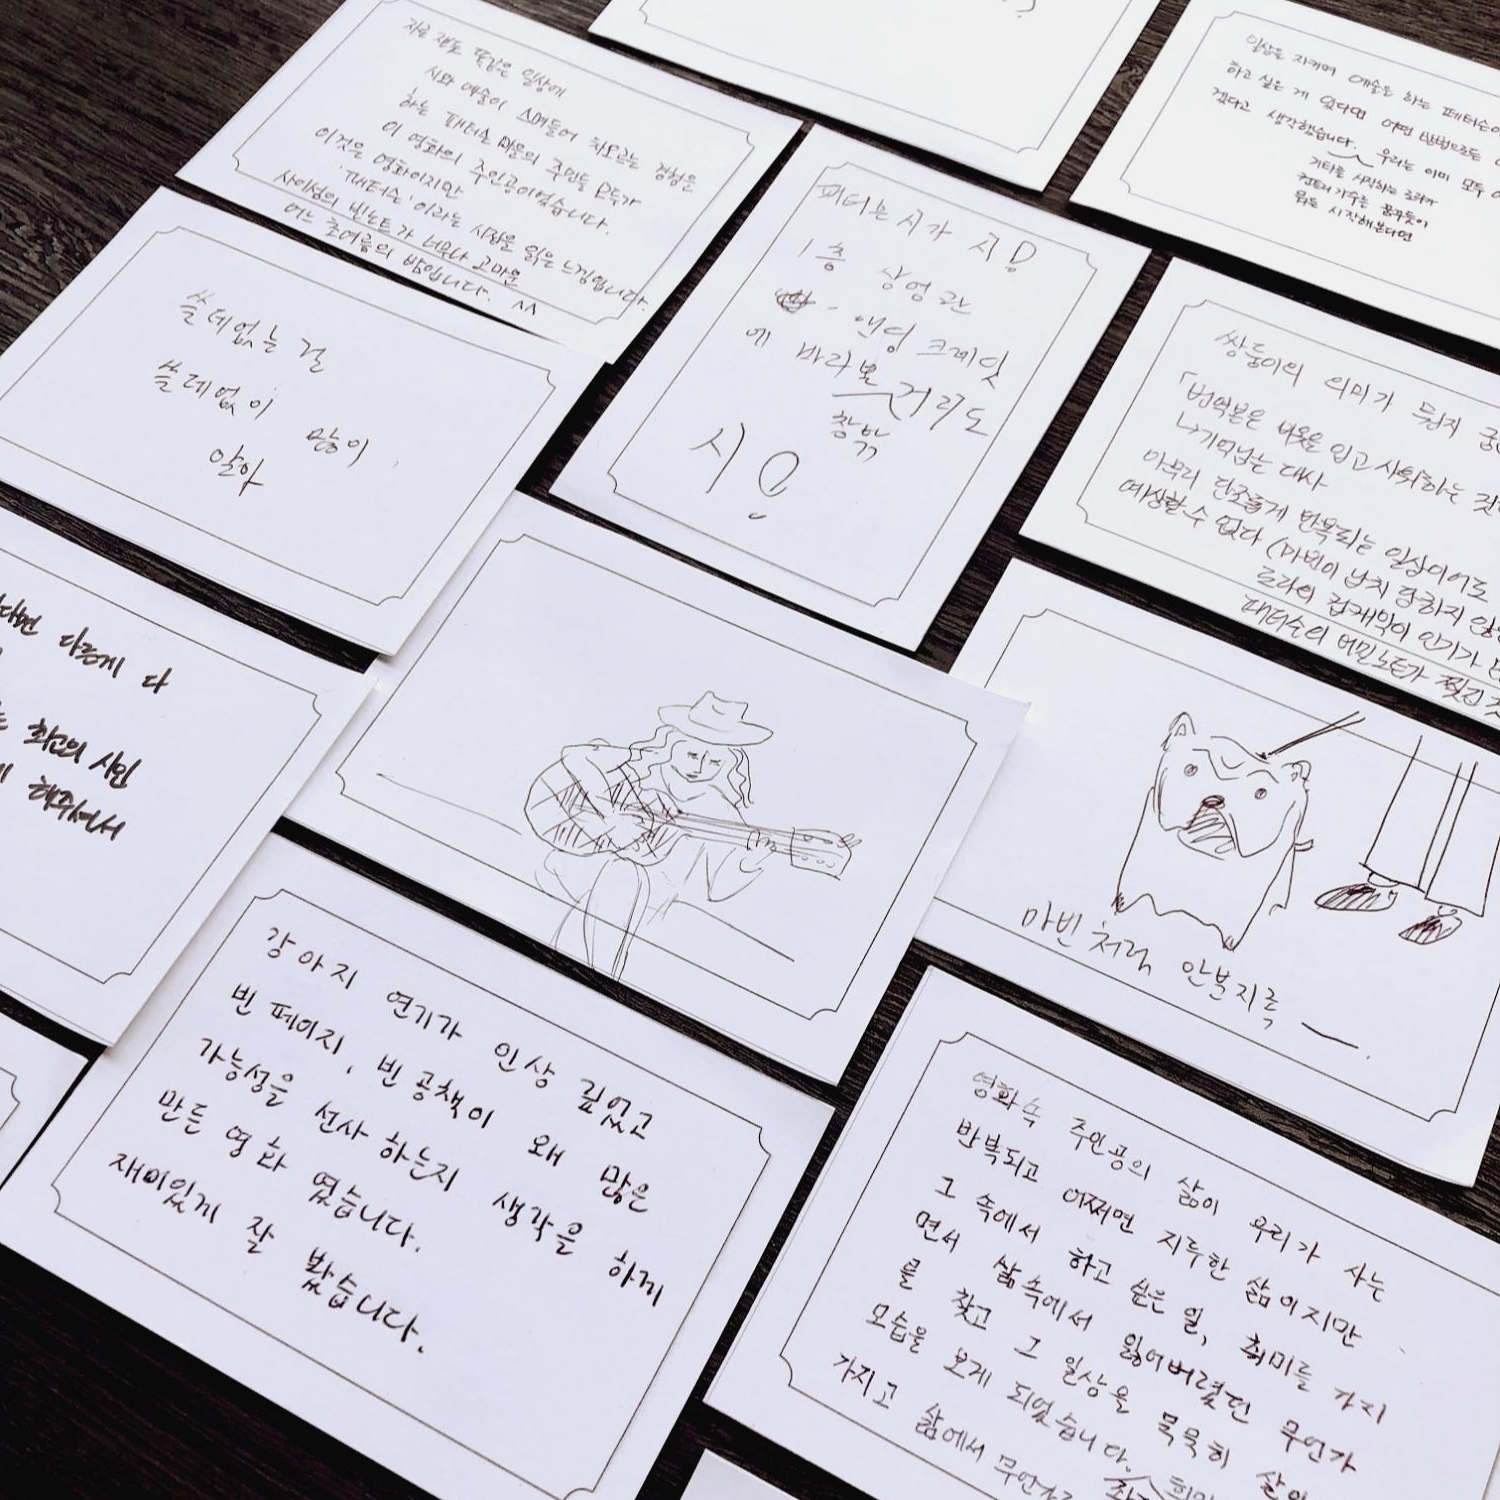 똑같은 일상에
시와 예술이 스며들어 차오르는 경험을
하는 패터슨 마을의 주민들 모두가
이 영화의 주인공이었습니다.
이것은 영화이지만
'패터슨'이라는 시집을 읽은 느낌입니다.
사이섬의 빈노트가 너무나 고마운
어느 초여름의 밤입니다. ^^
일상을 지키며 예술을 하는 패터슨이
하고 싶은 게 있다면 어떤 방법으로든
겠다고 생각했습니다. 우리는 이미 모두
기타를 시작하는 로라가
컨트리 가수를 꿈꾸듯이
뭐든 시작해본다면
쓸데없는 걸
쓸데없이 많이
알아
피터는 시가 시!
1층 상영관
- 앤딩 크레딧
에 바라본 거리도
창밖
시!
쌍둥이의 의미가 뭔지
「번역본은 비옷을 입고 샤워하는
나 기억남는 대사
아무리 단조롭게 반복되는 일상이어도
예상할 수 없다 (마빈이 납치 당하지
로라의 컵케익이 인기가
패터슨의 비밀노트가 찢길
다르게 다
최고의 시인
해주셔서
마빈처럼 안분지족 —.
강아지 연기가 인상 깊었고
빈 페이지, 빈 공책이 왜 많은
가능성을 선사 하는지 생각을 하게
만든 영화 였습니다.
재미있게 잘 봤습니다.
영화속 주인공의 삶이 우리가 사는
반복되고 어쩌면 지루한 삶이지만
그 속에서 하고 싶은 일, 취미를 가지
면서 삶속에서 잃어버렸던 무언가
를 찾고 그 일상을 묵묵히
모습을 보게 되었습니다.
가지고 삶에서